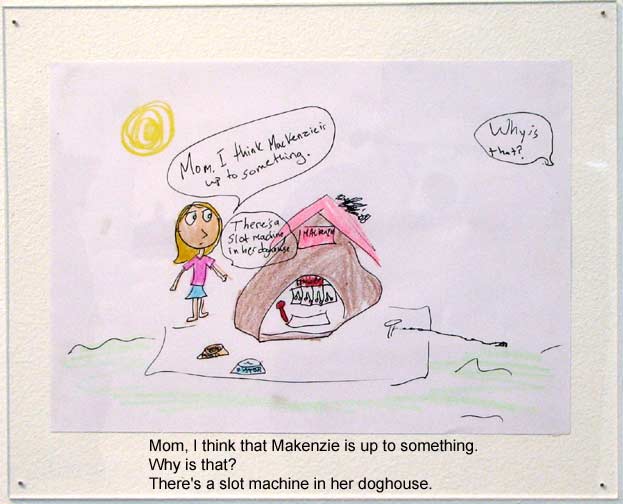 Mom, I think MacKenzie is
up to something.
Why is
that?
There's a
slot machine
in her doghouse.
Mom, I think that Makenzie is up to something.
Why is that?
There's a slot machine in her doghouse.